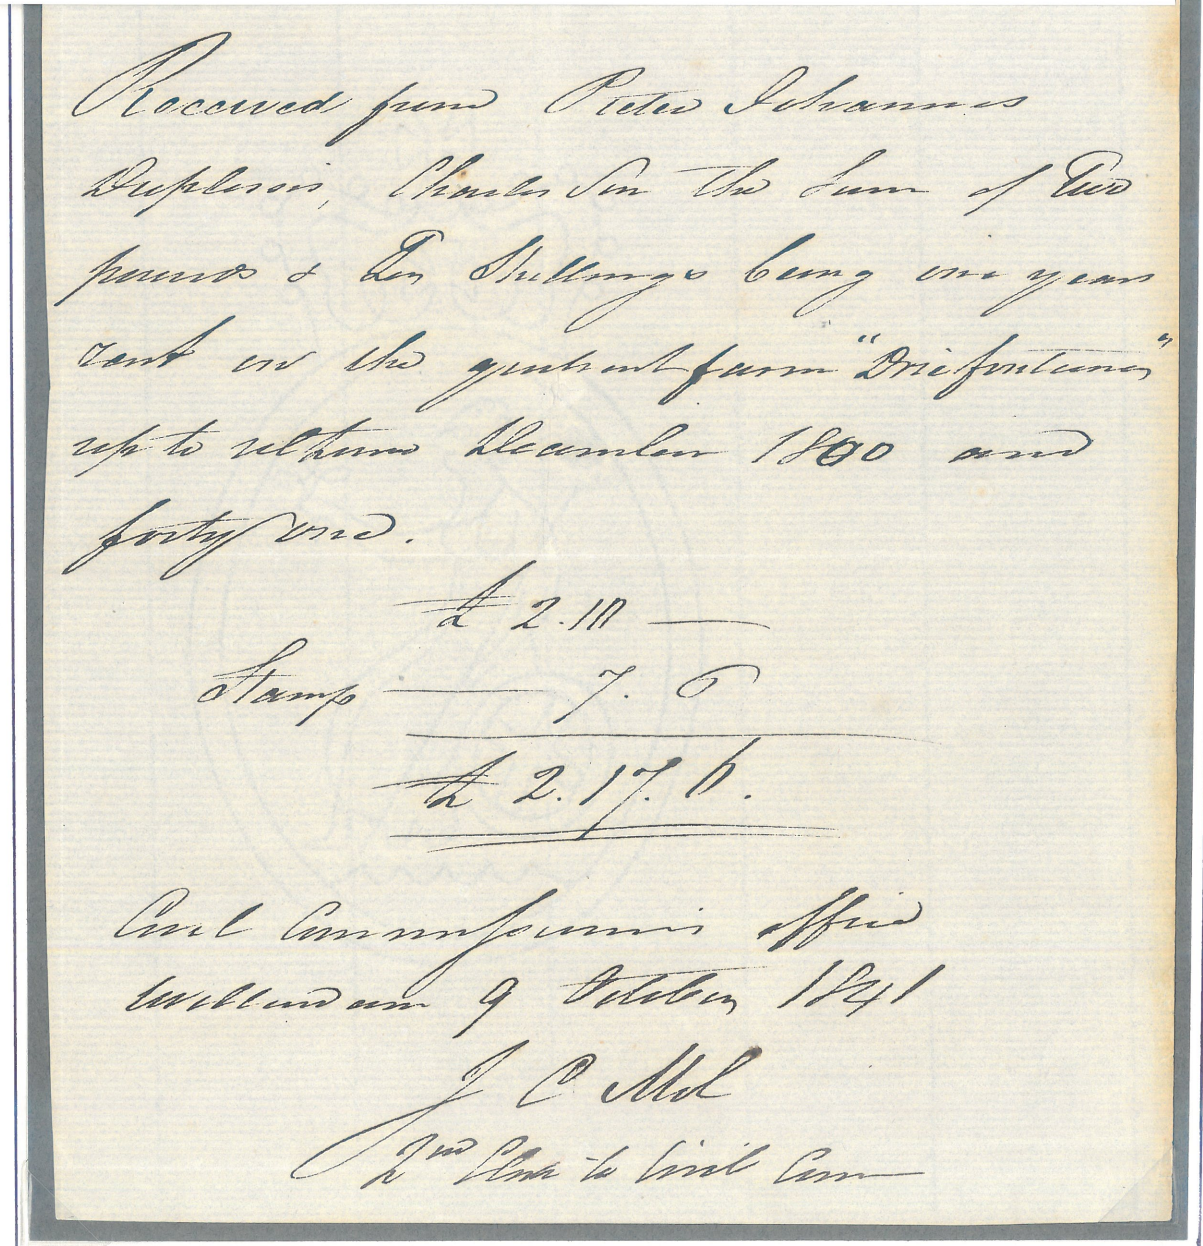 Received from Pieter Johannes
Duplessis, Charles Son the Sum of Two
pounds & Ten Shillings being one years
rent on the quitrent farm "Driefonteinen"
up to ultimo December 1800 and
forty one.
£ 2.10 —
Stamp — 7. 6
£ 2. 17. 6.
Civil Commissioners office
Swellendam 9 October 1841
J C Mol
2nd Clerk to Civil Com